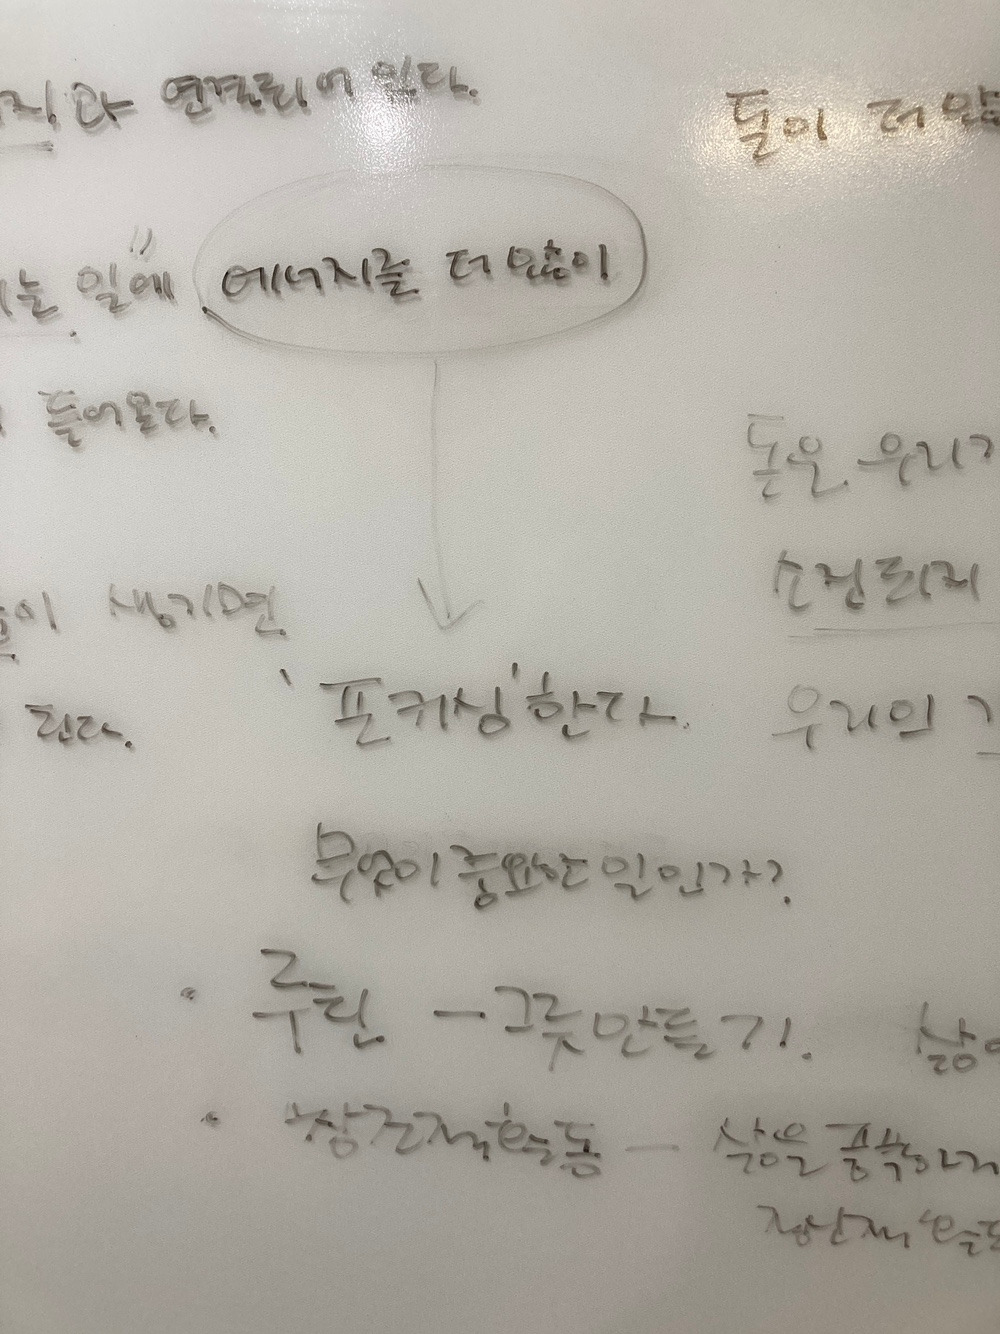 과 연결되어 있다.
돈이 더
는 일에 에너지를 더 많이
들어온다.
돈은 우리
이 생기면
소진되지
된다.
'포커싱'한다.
우리의
무엇이 중요한 일인가?
• 루틴 - 그릇만들기.
• 창조적 활동 - 삶을 풍족하게